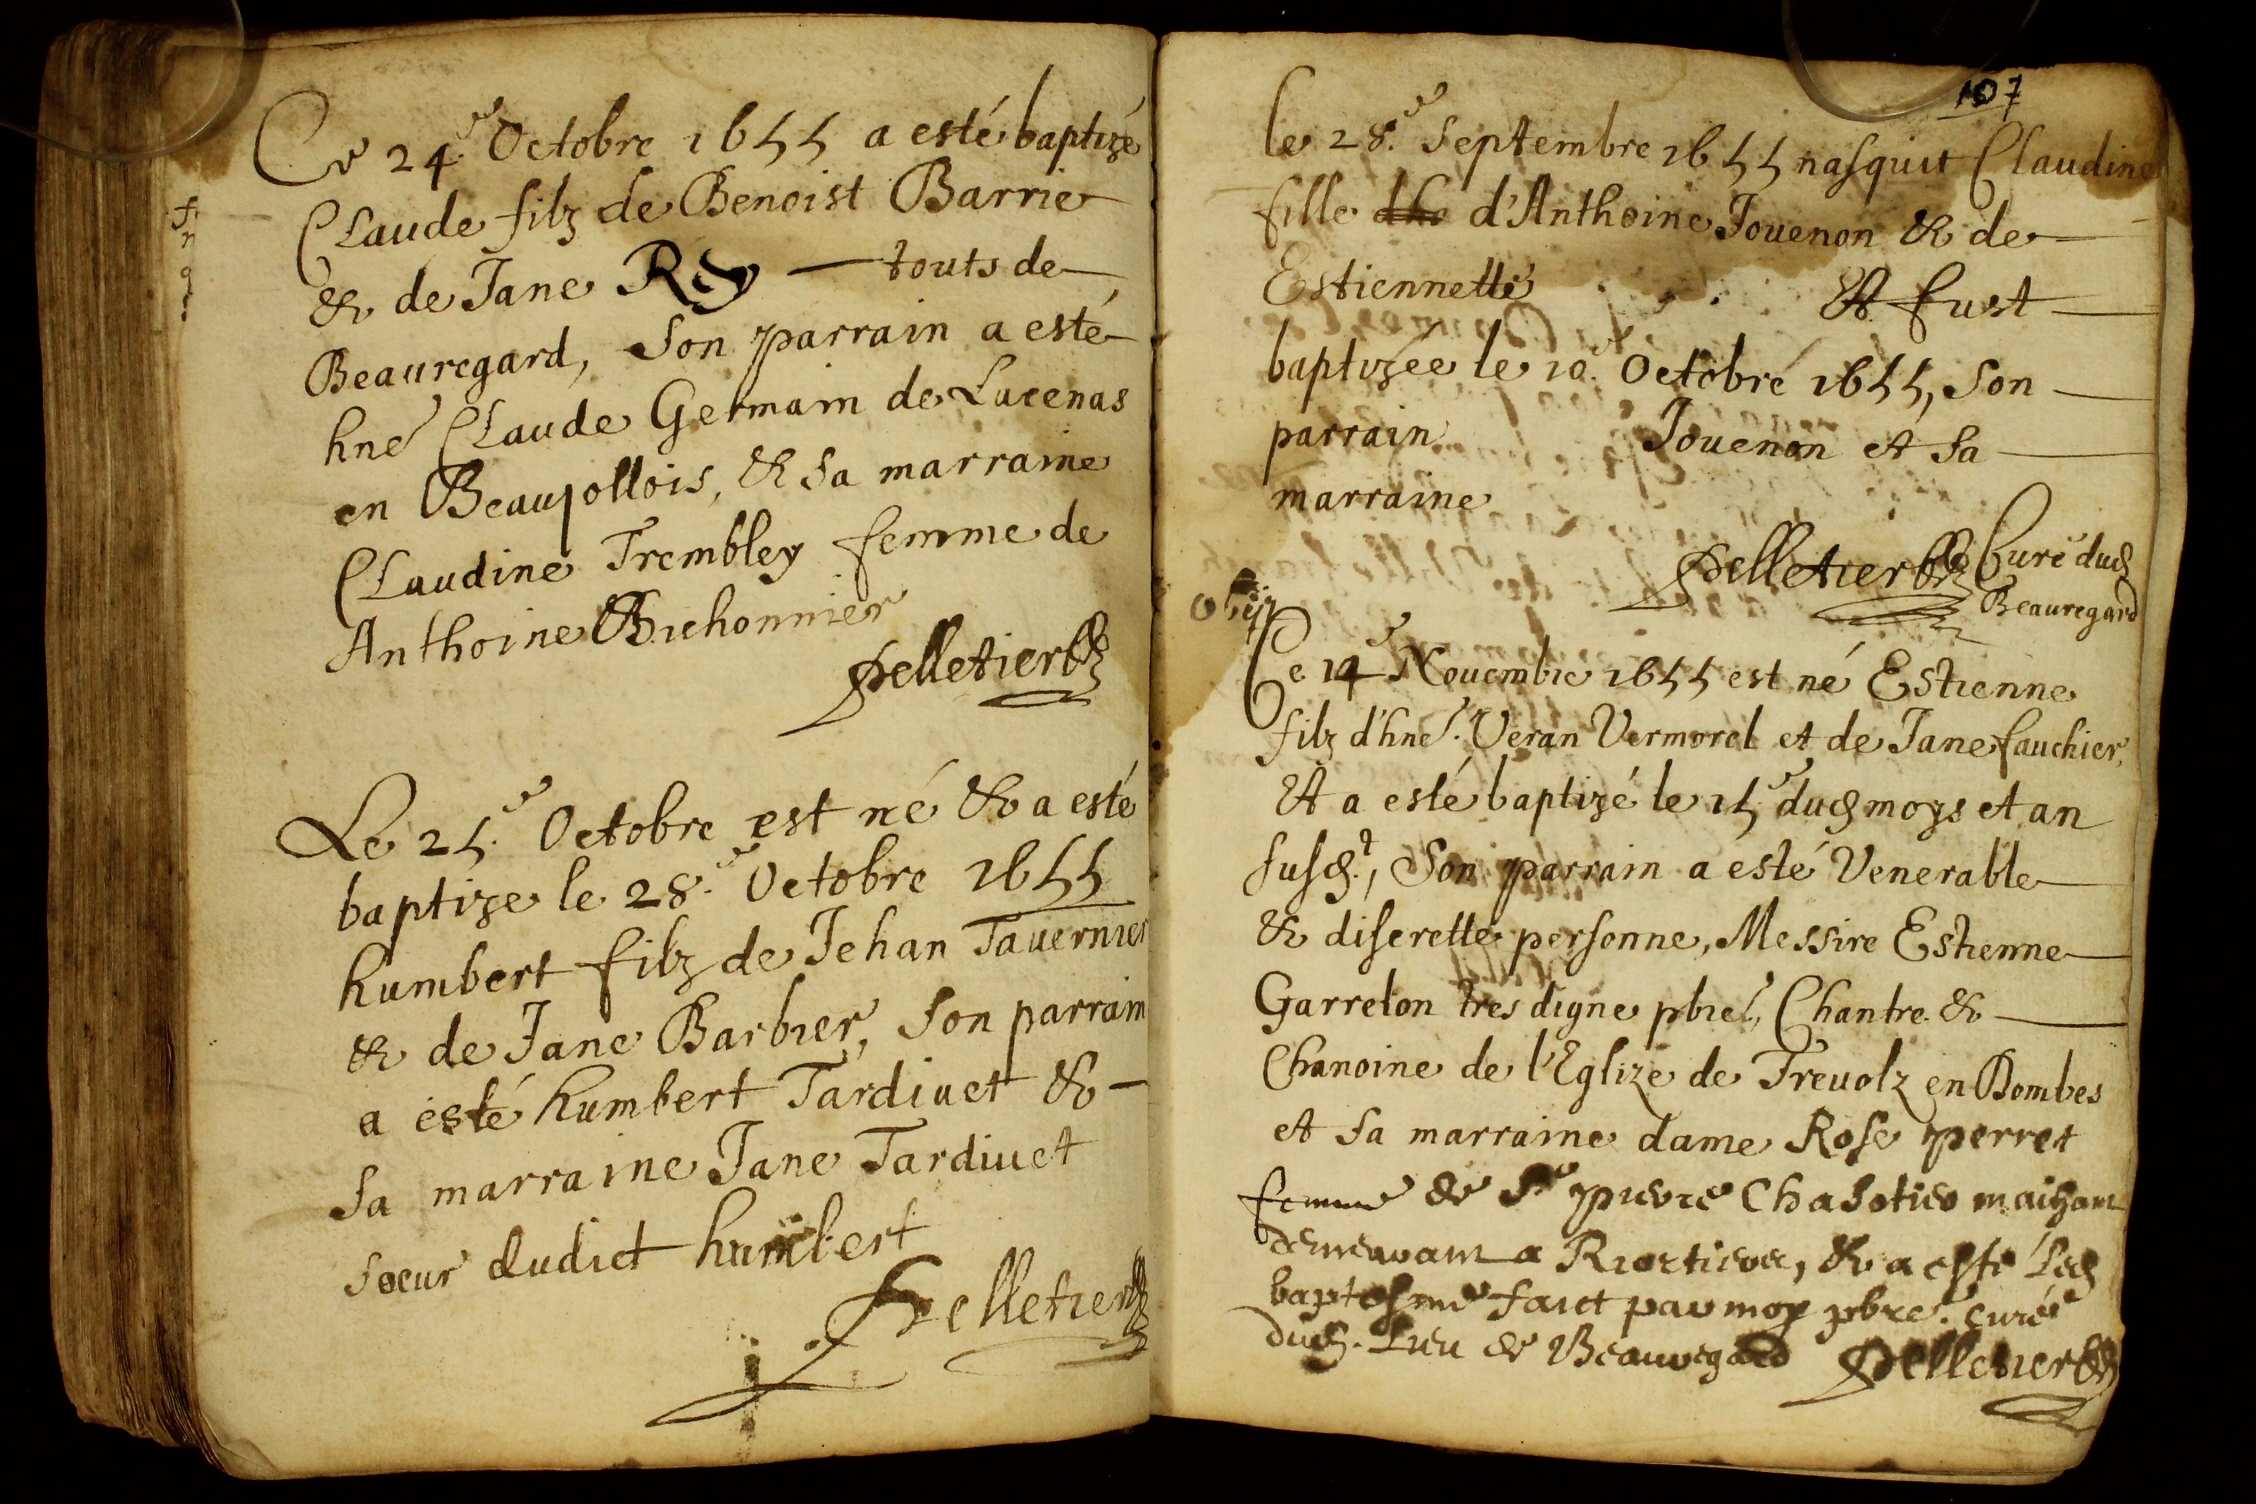 Ce 24.e Octobre 1655 a esté baptizé
Claude filz de Benoist Barrie
& de Jane Rey — touts de
Beauregard, Son parrain a esté
hne Claude Germain de Lucenas
en Beaujollois, & sa marraine
Claudine Trembley femme de
Anthoine Bichonnier
Pelletier
Le 25.e Octobre est né & a esté
baptize le 28.e Octobre 1655
humbert filz de Jehan Tavernier
& de Jane Barbier, Son parrain
a esté humbert Tardiuet & —
Sa marraine Jane Tardiuet
Soeur dudict humbert
Pelletier
107
le 28.e Septembre 1655 nasquit Claudine
fille d'Anthoine Jouenon & de
Estiennette Et fust
baptizée le 10.e Octobre 1655, Son
parrain Jouenon et Sa
marraine
Pelletier Curé dud
Beauregard
obijt
Ce 14e Nouembre 1655 est né Estienne
filz d'hne. Veran Vermorel et de Jane fauchier,
Et a esté baptizé le 15e dud moys et an
susd.t, Son parrain a esté Venerable
& discrette personne, Messire Estienne
Garreton tres digne pbre, Chantre &
Chanoine de l'Eglize de Treuolz en Dombes
et Sa marraine dame Rose perret
femme de Sr. pierre Chasotier
demeurant a Riortier, & a esté Led
baptesme faict par moy pbre. curé
dud. Lieu de Beauregard Pelletier